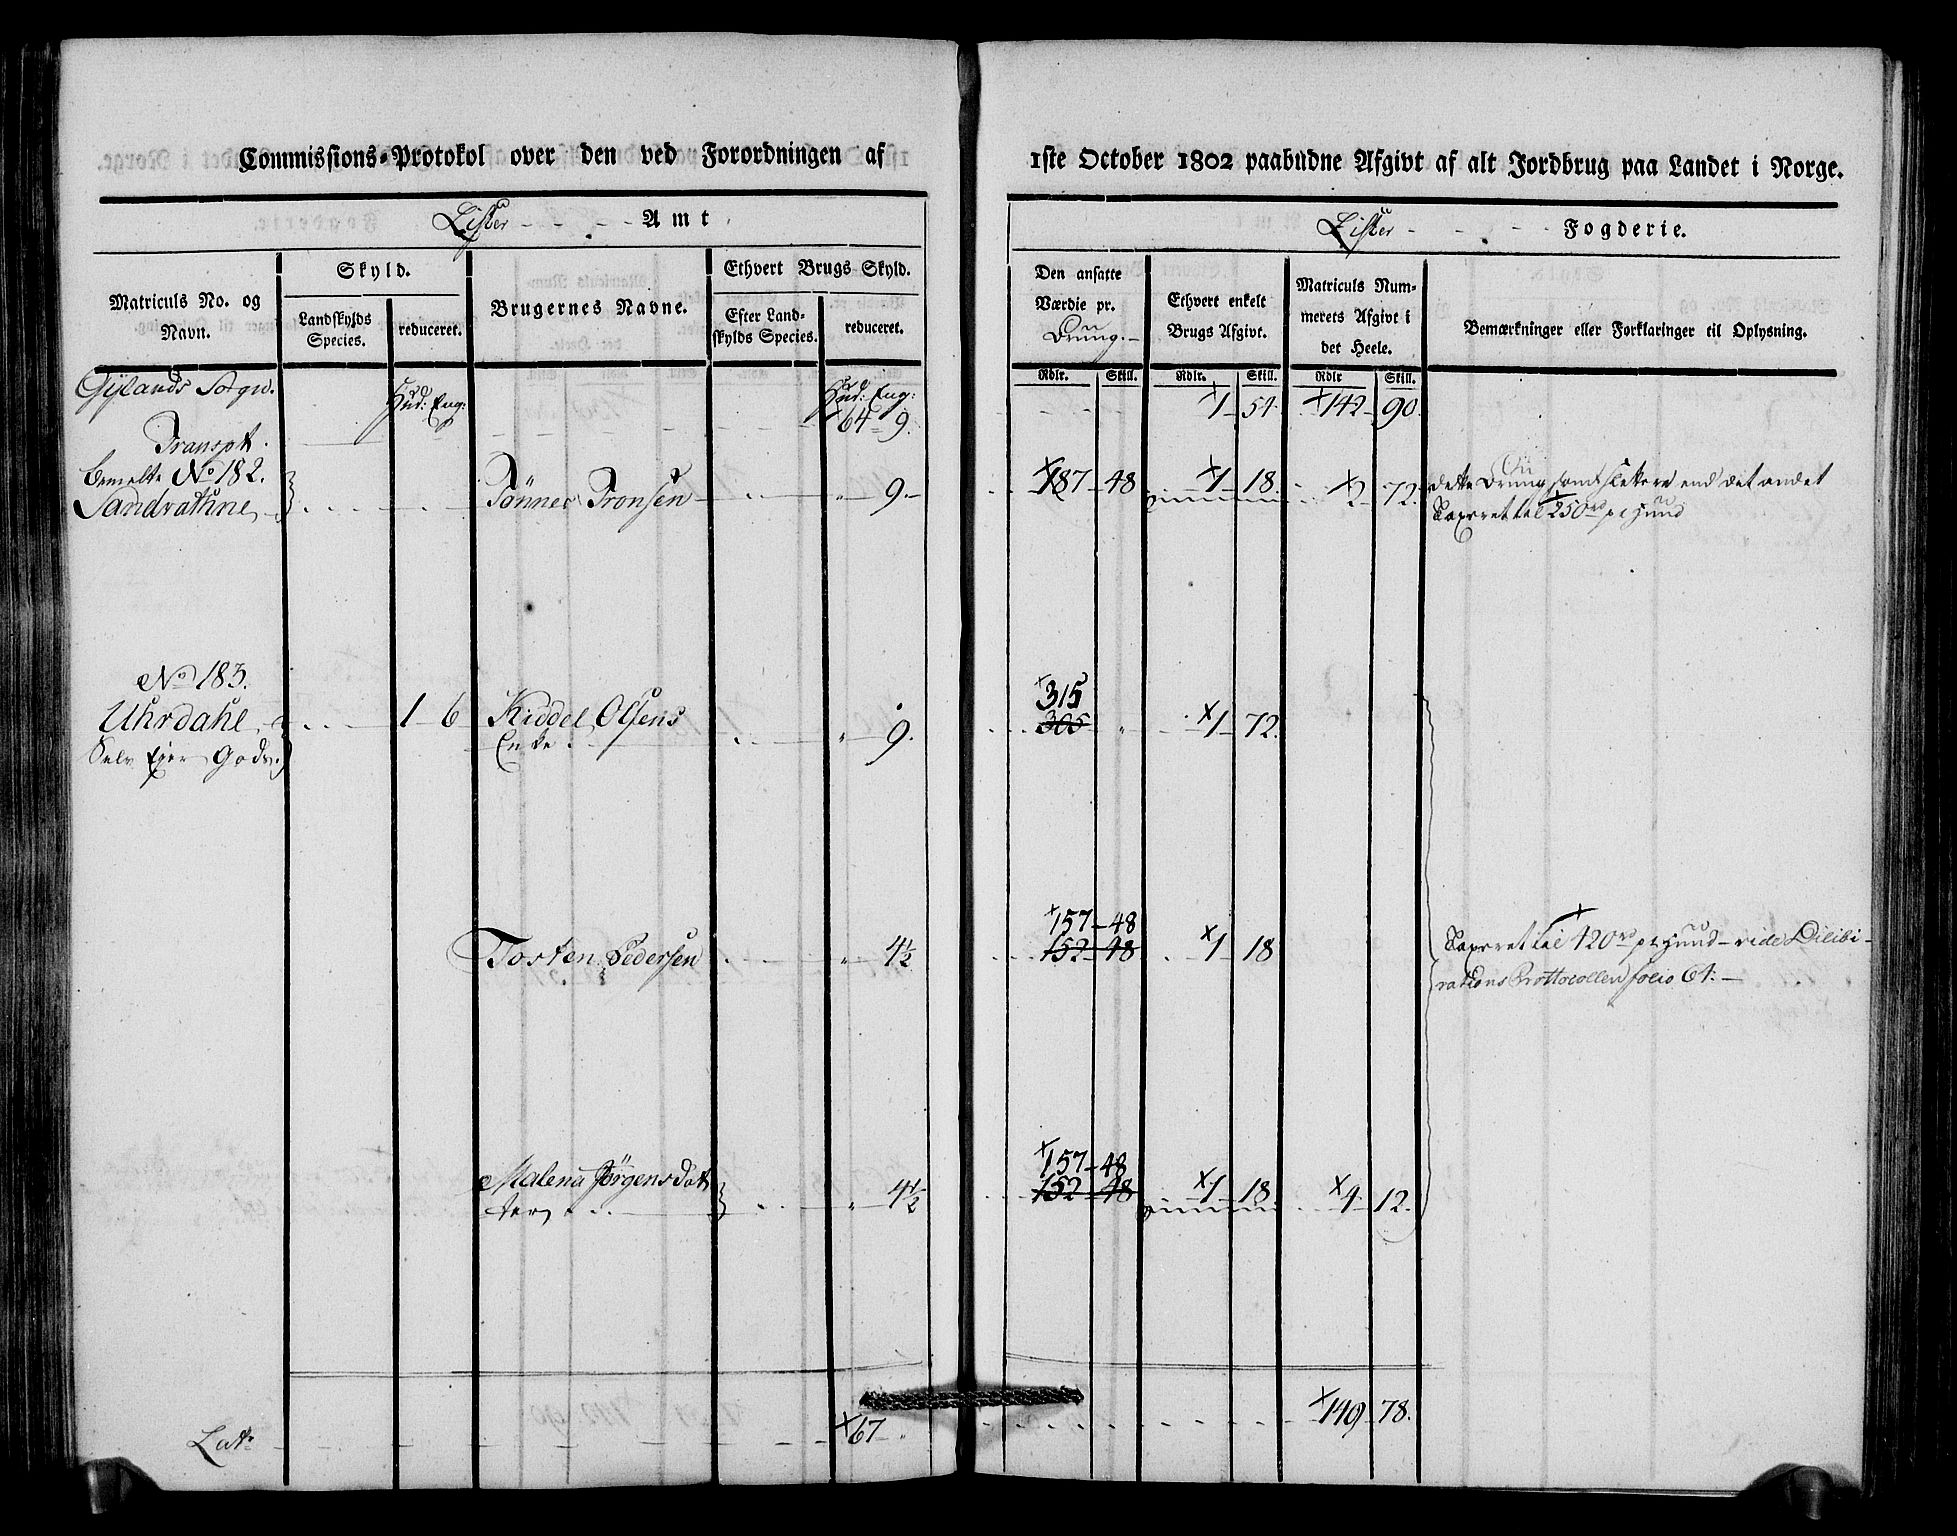 Commissions-Protokol over den ved Forordningen af
Lister - - - Amt.
Matriculs No. og Navn.
Skyld.
Landskylds Species.
reduceret.
Brugernes Navne.
Ethvert Brugs Skyld.
Efter Landskylds Species.
reduceret.
Gylands Sogn.
Hud: Eng:
Hud: Eng:
Transpt. 64 9.
bemelte No 182.
Sandvathne Tönnes Tronsen 9.
No 183.
Uhrdahl 1 6 Kiddel Olsens 9.
Selv Ejer Gods. Enke
Tosten Pedersen 4½
Malena Jörgensdat 4½
ter
Lat. 67
1ste October 1802 paabudne Afgivt af alt Jordbrug paa Landet i Norge.
Lister - - - Fogderie.
Den ansatte Værdie pr. Brug.
Ethvert enkelt Brugs Afgivt.
Matriculs Nummerets Afgivt i det Heele.
Bemærkninger eller Forklaringer til Oplysning.
Rdlr. Skill. Rdlr. Skill. Rdlr Skill.
1 54. 142 90.
187 48 1 18. 2 72. dette Brug som slettere end det andet
Taxeret til 250rd pr Huud
315
305 „ 1 72.
157 48
152 48 1 18 Taxeret til 420rd pr Huud vide Dilibi-
rations Prottocollen folio 64.
157 48
152 48 1 18. 4 12.
149 78.